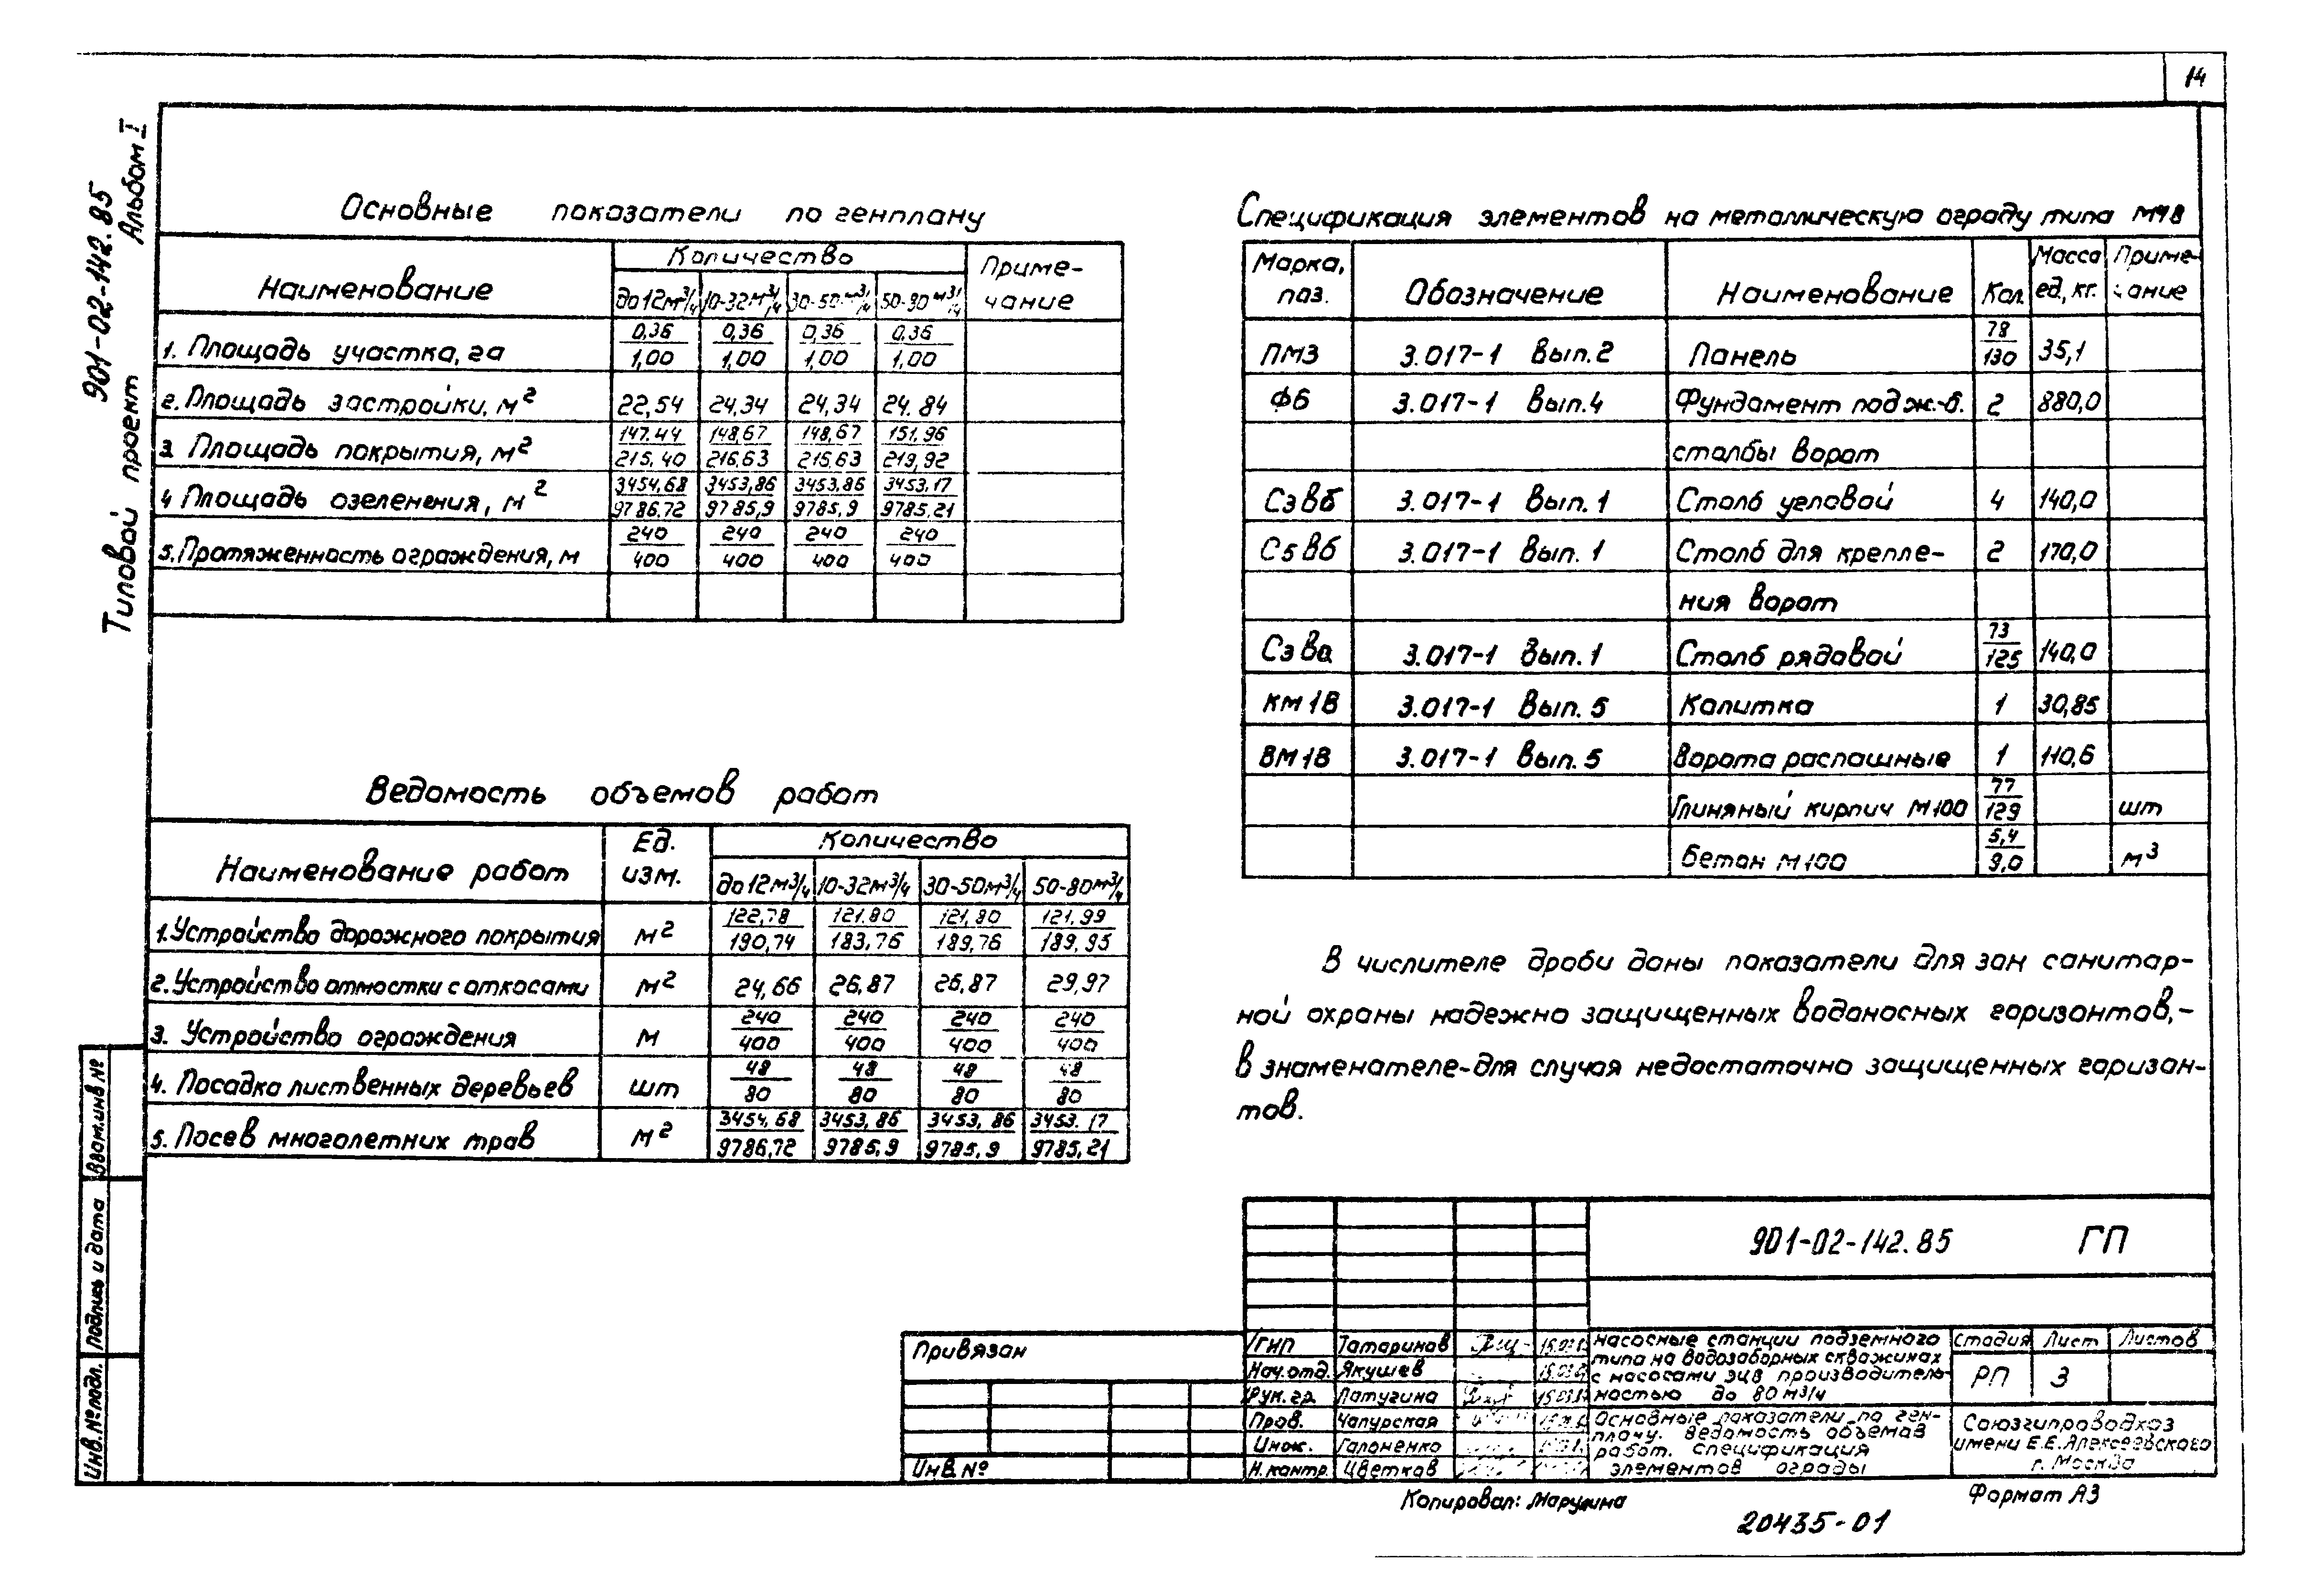 14
Типовой проект 901-02-142.85 Альбом I
Основные показатели по генплану
Наименование | Количество | Приме-чание
до 12м³/ч | 10-32м³/ч | 30-50м³/ч | 50-80м³/ч
1. Площадь участка, га | 0,36/1,00 | 0,36/1,00 | 0,36/1,00 | 0,36/1,00
2. Площадь застройки, м² | 22,54 | 24,34 | 24,34 | 24.84
3. Площадь покрытия, м² | 147.44/215,40 | 148,67/216,63 | 148,67/216,63 | 151,96/219,92
4 Площадь озеленения, м² | 3454,68/9786.72 | 3453,86/9785,9 | 3453,86/9785,9 | 3453,17/9785,21
5. Протяженность ограждения, м | 240/400 | 240/400 | 240/400 | 240/400
Ведомость объемов работ
Наименование работ | Ед. изм. | Количество
до 12м³/ч | 10-32м³/ч | 30-50м³/ч | 50-80м³/ч
1. Устройство дорожного покрытия | м² | 122,78/190,74 | 121.80/183,76 | 121,80/189,76 | 121,99/189,95
2. Устройство отмостки с откосами | м² | 24,66 | 26,87 | 26,87 | 29,97
3. Устройство ограждения | м | 240/400 | 240/400 | 240/400 | 240/400
4. Посадка лиственных деревьев | шт | 48/80 | 48/80 | 48/80 | 48/80
5. Посев многолетних трав | м² | 3454,68/9786,72 | 3453,86/9785,9 | 3453,86/9785,9 | 3453.17/9785,21
Спецификация элементов на металлическую ограду типа М4В
Марка, поз. | Обозначение | Наименование | Кол. | Масса ед, кг. | Приме-чание
ПМ3 | 3.017-1 Вып.2 | Панель | 78/130 | 35,1
Ф6 | 3.017-1 Вып.4 | Фундамент под ж.-б. | 2 | 880,0
столбы ворот
С3Вб | 3.017-1 Вып.1 | Столб угловой | 4 | 140,0
С5Вб | 3.017-1 Вып.1 | Столб для крепле- | 2 | 170,0
ния ворот
С3Ва | 3.017-1 Вып.1 | Столб рядовой | 73/125 | 140,0
КМ1В | 3.017-1 Вып.5 | Калитка | 1 | 30,85
ВМ1В | 3.017-1 Вып.5 | Ворота распашные | 1 | 110,6
Глиняный кирпич М100 | 77/129 | шт
Бетон М100 | 5,4/9,0 | м³
В числителе дроби даны показатели для зон санитар-
ной охраны надежно защищенных водоносных горизонтов,-
в знаменателе-для случая недостаточно защищенных горизон-
тов.
901-02-142.85 ГП
Привязан
Инв.№
ГИП Татаринов
Нач.отд. Якушев
Рук.гр. Латугина
Пров. Чапурская
Инж. Гапоненко
Н.контр. Цветков
Насосные станции подземного
типа на водозаборных скважинах
с насосами ЭЦВ производитель-
ностью до 80 м3/ч
Стадия | Лист | Листов
РП | 3
Основные показатели по ген-
плану. Ведомость объемов
работ. Спецификация
элементов ограды
Союзгипроводхоз
имени Е.Е.Алексеевского
г. Москва
Инв.№ подл. | Подпись и дата | Взам.инв №
Копировал: Марулина
Формат А3
20435-01